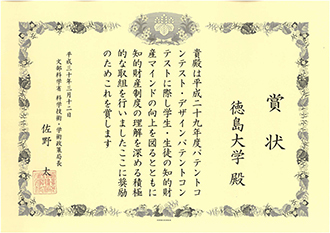 賞状
徳島大学殿
貴殿は平成二十九年度パテントコ
ンテスト・デザインパテントコン
テストに際し学生・生徒の知的財
産マインドの向上を図るとともに
知的財産制度の理解を深める積極
的な取組を行いましたここに奨励
のためこれを賞します
平成三十年三月十二日
文部科学省 科学技術・学術政策局長
佐野 太